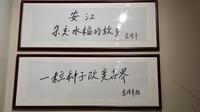 安江
杂交水稻的故乡
袁隆平
一粒种子改变世界
袁隆平题